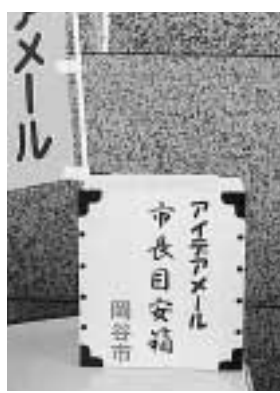 アメール
アイデアメール
市長目安箱
岡谷市